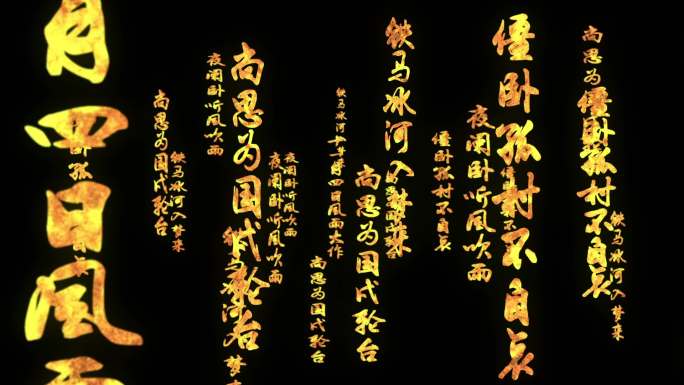 铁马冰河入梦来
僵卧孤村不自哀
尚思为
僵卧孤村不自哀
夜阑卧听风吹雨
僵卧孤村不自哀
铁马冰河入梦来
尚思为国戍轮台
铁马冰河
月四日风雨大作
尚思为国戍轮台
夜阑卧听风吹雨
夜阑卧听风吹雨
尚思为国戍轮台
夜阑卧听风吹雨
铁马冰河入梦来
尚思为国戍轮台
月四日风雨